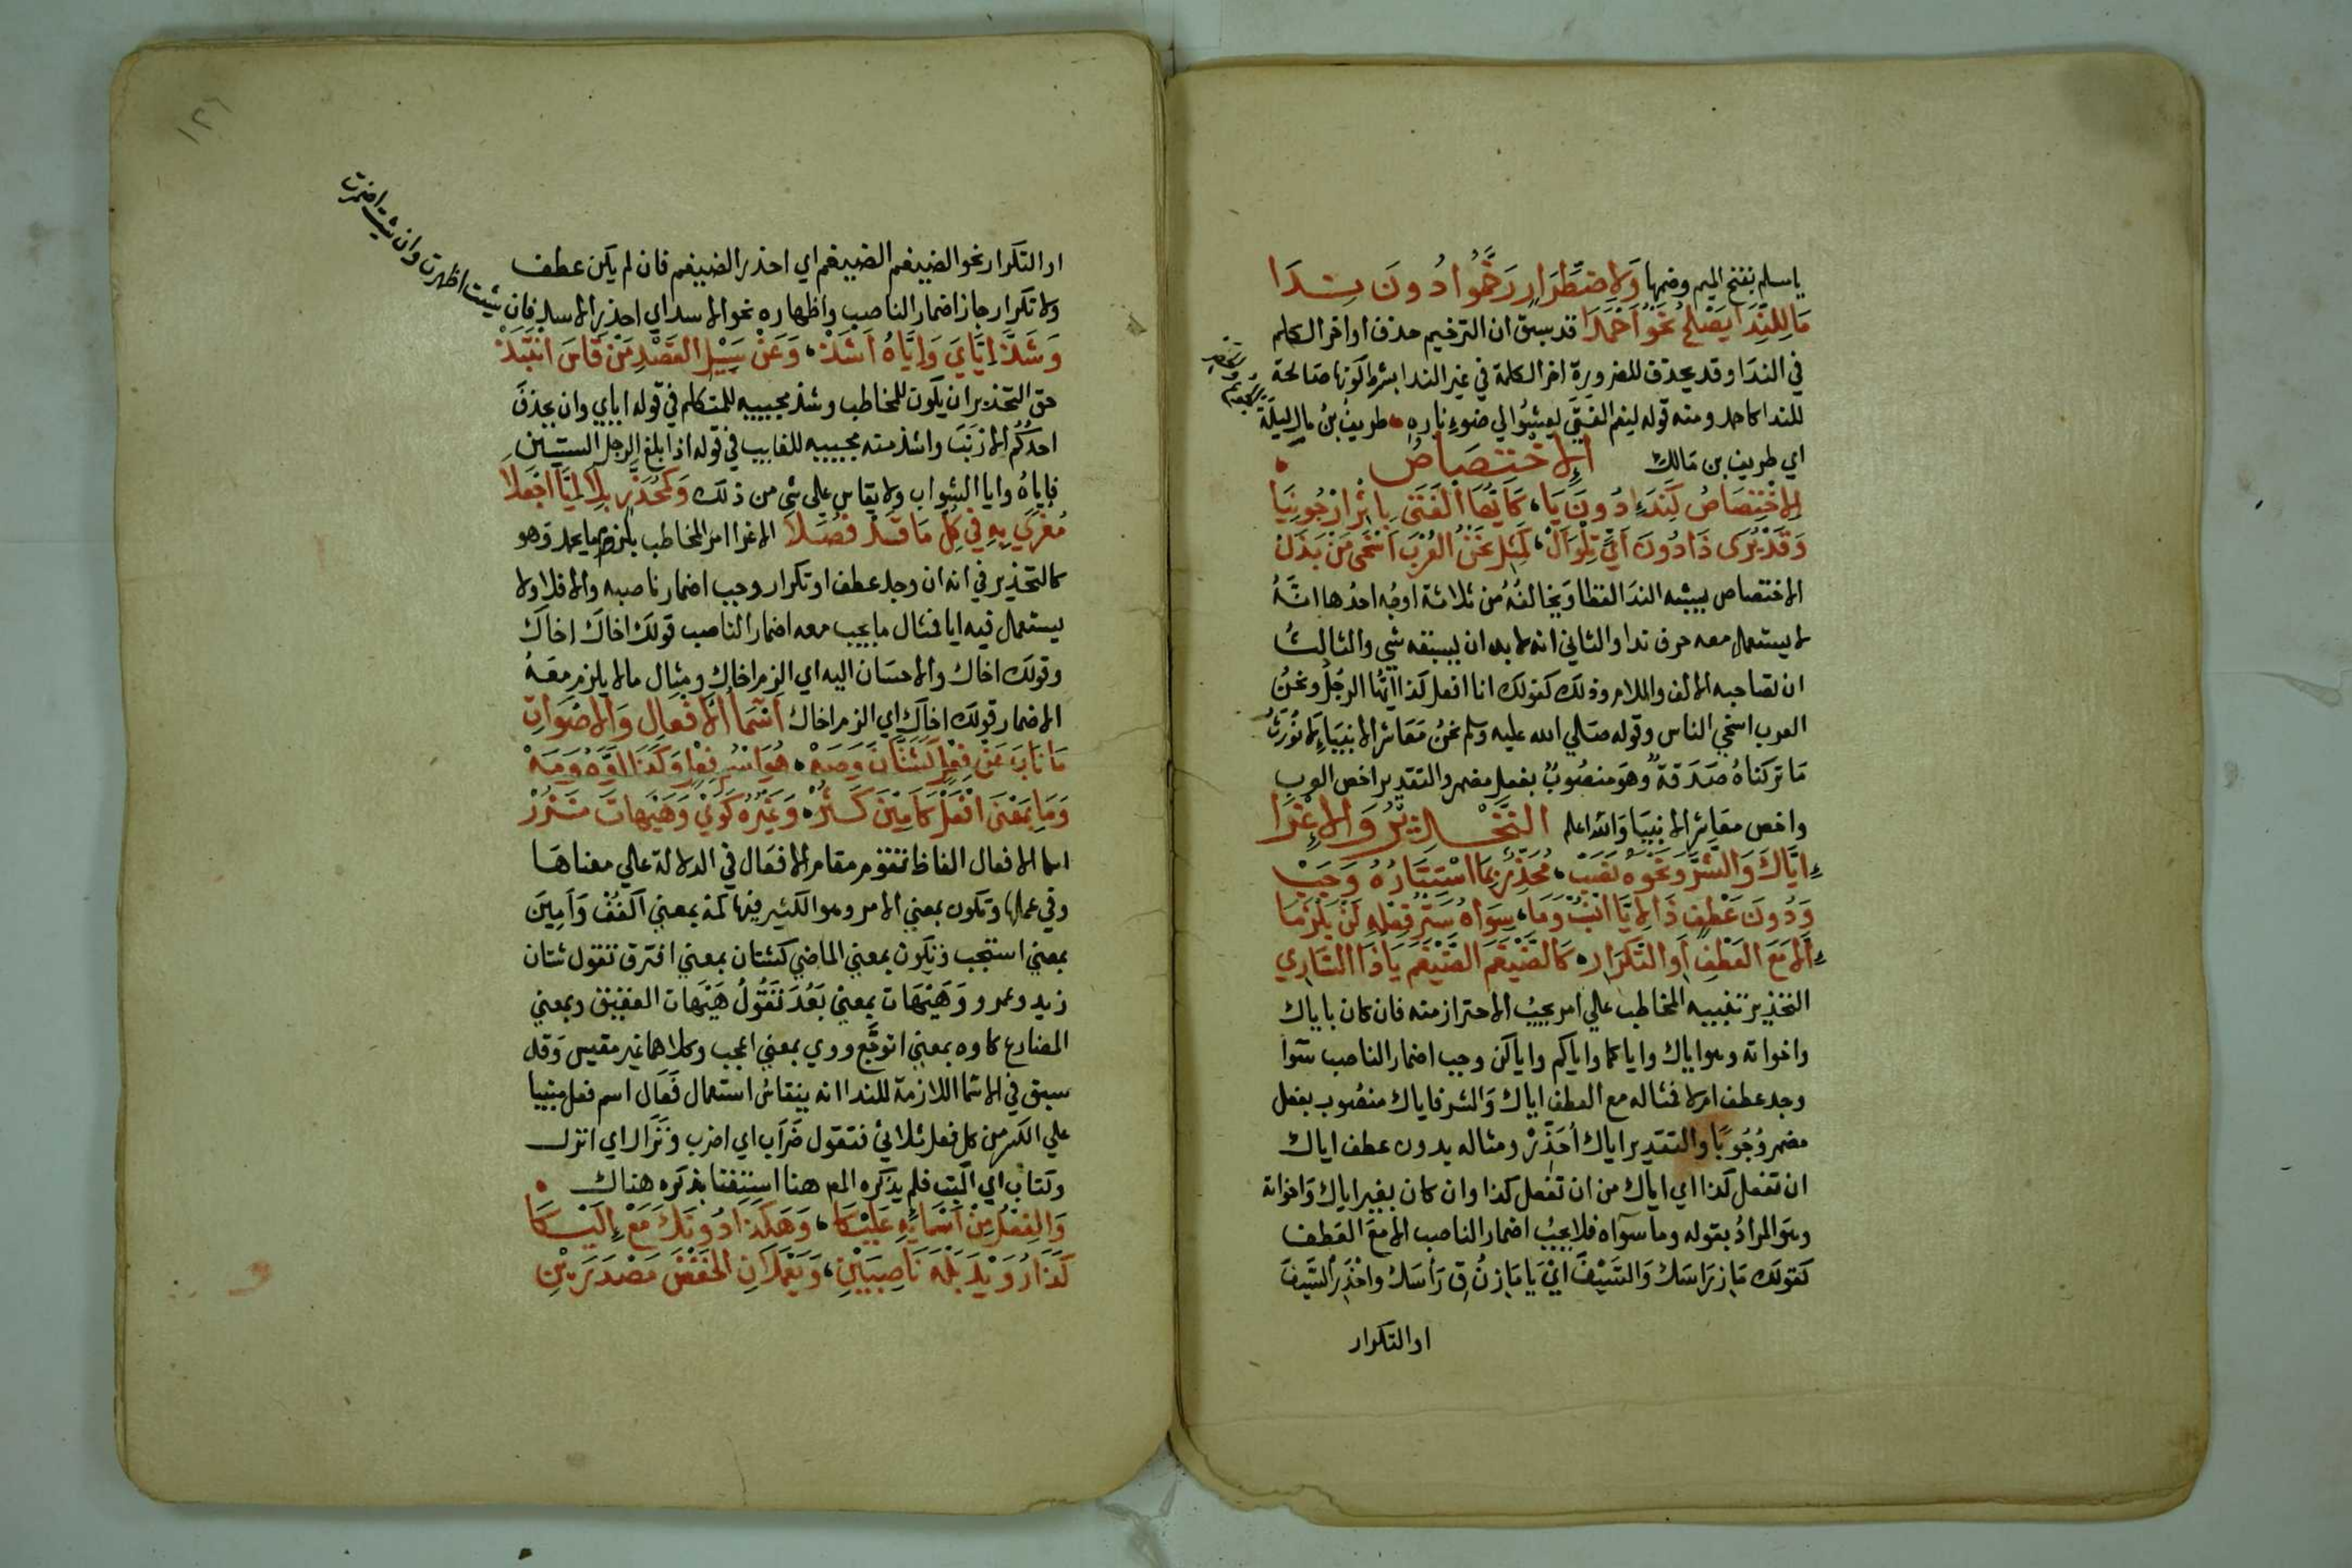 ياسلم بفتح الميم وضمها وَلِاضْطِرَارٍ رَخَّمُوا دُونَ نِدَا
مَا لِلنِّدَا يَصْلُحُ نَحْوُ أَحْمَدَا قد سبق ان الترخيم حذف اواخر الكلم
في الندا وقد يحذف للضرورة اخر الكلمة في غير الندا بشرط كونها صالحة
للندا كاحمد ومنه قوله لنعم الفتى يعشوا الي ضوء ناره طريف بن مال ليلة
الجوع والخصر
اي طريف بن مالك الاختصاص
الِاخْتِصَاصُ كَنِدَاءٍ دُونَ يَا كَأَيُّهَا الْفَتَى بِإِثْرِ ارْجُونِيَا
وَقَدْ يُرَى ذَا دُونَ أَيٍّ تِلْوَ أَلْ كَمِثْلِ نَحْنُ الْعُرْبَ أَسْخَى مَنْ بَذَلْ
الاختصاص يشبه الندا لفظا ويخالفه من ثلاثة اوجه احدها انه
لا يستعمل معه حرف ندا والثاني انه لا بد ان يسبقه شي والثالث
ان تصاحبه الالف واللام وذلك كقولك انا افعل كذا ايها الرجل ونحن
العرب اسخي الناس وقوله صلي الله عليه وسلم نحن معاشر الانبياء لا نورث
ما تركناه صدقة وهو منصوب بفعل مضمر والتقدير اخص العرب
واخص معاشر الانبيا والله اعلم التحذير والإغرا
إِيَّاكَ وَالشَّرَّ وَنَحْوَهُ نَصَبْ مُحَذِّرٌ بِمَا اسْتِتَارُهُ وَجَبْ
وَدُونَ عَطْفٍ ذَا لِإِيَّا انْسُبْ وَمَا سِوَاهُ سَتْرُ فِعْلِهِ لَنْ يَلْزَمَا
إِلَّا مَعَ الْعَطْفِ أَوِ التَّكْرَارِ كَالضَّيْغَمَ الضَّيْغَمَ يَا ذَا السَّارِي
التحذير تنبيه المخاطب علي امر يجب الاحتراز منه فان كان باياك
واخواته وهو اياك واياكما واياكم واياكن وجب اضمار الناصب سوآ
وجد عطف ام لا فمثاله مع العطف اياك والشر فاياك منصوب بفعل
مضمر وجوبا والتقدير اياك احذر ومثاله بدون عطف اياك
ان تفعل كذا اي اياك من ان تفعل كذا وان كان بغير اياك واخواته
وهو المراد بقوله وما سواه فلا يجب اضمار الناصب الا مع العطف
كقولك ماز راسك والسيف اي يا مازن ق راسك واحذر السيف
او التكرار
١٢٦
او التكرار نحو الضيغم الضيغم اي احذر الضيغم فان لم يكن عطف
ولا تكرار جاز اضمار الناصب واظهاره نحو الاسد اي احذر الاسد فان شيت اظهرت وان شيت اضمرت
وَشَذَّ إِيَّايَ وَإِيَّاهُ أَشَذْ وَعَنْ سَبِيلِ الْقَصْدِ مَنْ قَاسَ انْتَبَذْ
حق التحذير ان يكون للمخاطب وشذ مجييه للمتكلم في قوله اياي وان يحذف
احدكم الارنب واشذ منه مجييه للغايب في قوله اذا بلغ الرجل الستين
فاياه وايا الشواب ولا يقاس علي شي من ذلك وَكَمُحَذَّرٍ بِلَا إِيَّا اجْعَلَا
مُغْرًى بِهِ فِي كُلِّ مَا قَدْ فُصِّلَا الاغرا امر المخاطب بلزوم ما يحمد وهو
كالتحذير في انه ان وجد عطف او تكرار وجب اضمار ناصبه والا فلا ولا
يستعمل فيه ايا فمثال ما يجب معه اضمار الناصب قولك اخاك اخاك
وقولك اخاك والاحسان اليه اي الزم اخاك ومثال ما لا يلزم معه
الاضمار قولك اخاك اي الزم اخاك أسماء الأفعال والأصوات
مَا نَابَ عَنْ فِعْلٍ كَشَتَّانَ وَصَهْ هُوَ اسْمُ فِعْلٍ وَكَذَا أَوَّهْ وَمَهْ
وَمَا بِمَعْنَى افْعَلْ كَآمِينَ كَثُرْ وَغَيْرُهُ كَوَيْ وَهَيْهَاتَ نَزُرْ
اسما الافعال الفاظ تقوم مقام الافعال في الدلالة علي معناها
وفي عملها وتكون بمعني الامر وهو الكثير فيها كمه بمعني اكفف وآمين
بمعني استجب وتكون بمعني الماضي كشتان بمعني افترق تقول شتان
زيد وعمرو وهيهات بمعني بعد تقول هيهات العقيق وبمعني
المضارع كاوه بمعني اتوجع ووي بمعني اعجب وكلاهما غير مقيس وقد
سبق في الاسما اللازمة للندا انه ينقاس استعمال فعال اسم فعل مبنيا
علي الكسر من كل فعل ثلاثي فتقول ضراب اي اضرب ونزال اي انزل
وكتاب اي اكتب فلم يذكره المص هنا استغنا بذكره هناك
وَالْفِعْلُ مِنْ أَسْمَائِهِ عَلَيْكَا وَهَكَذَا دُونَكَ مَعْ إِلَيْكَا
كَذَا رُوَيْدَ بَلْهَ نَاصِبَيْنِ وَيَعْمَلَانِ الْخَفْضَ مَصْدَرَيْنِ